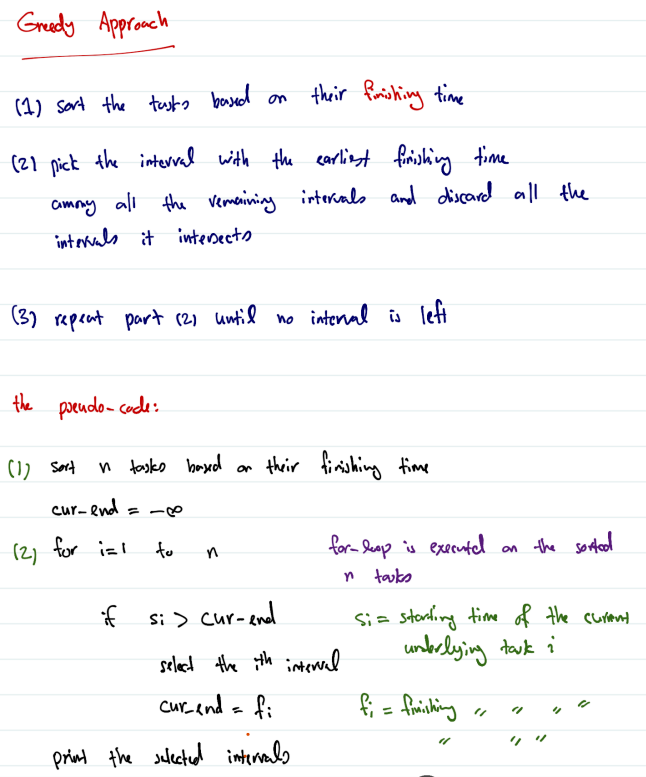 Greedy Approach
(1) sort the tasks based on their finishing time
(2) pick the interval with the earliest finishing time
among all the remaining intervals and discard all the
intervals it intersects
(3) repeat part (2) until no interval is left
the pseudo-code:
(1) sort n tasks based on their finishing time
cur-end = -∞
(2) for i=1 to n for-loop is executed on the sorted
n tasks
if si > cur-end si = starting time of the current
underlying task i
select the ith interval
cur-end = fi fi = finishing " " " "
" " "
print the selected intervals